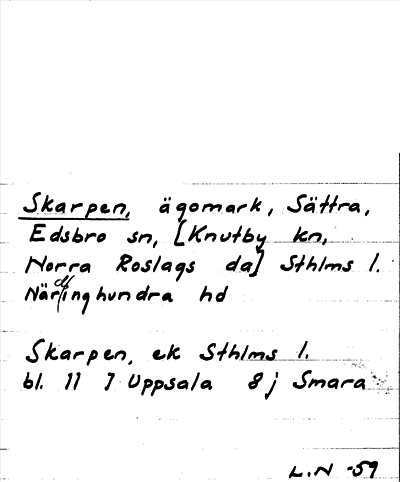 Skarpen, ägomark, Sättra,
Edsbro sn, [Knutby kn,
Norra Roslags da] Sthlms l.
Närdinghundra hd
Skarpen, ek Sthlms l.
bl. 11 I Uppsala 8j Smara
L.N -59